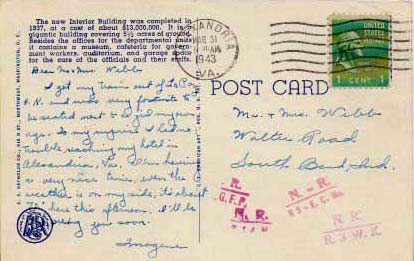 The new Interior Building was completed in
1937, at a cost of about $13,000,000. It is a
gigantic building covering 5½ acres of ground.
Besides the offices for the departmental units
it contains a museum, cafeteria for govern-
ment workers, auditorium, and garage space
for the cars of the officials and their staffs.
ALEXANDRIA
MAR 31
AM
1943
VA.
UNITED STATES
1 CENT 1
POST CARD
Dear Mr. Mrs. Webb:
I got my train out of La
O.K. and was very fortunate to
be seated next to a girl my own
age. To my surprise I had no
trouble reaching my hotel in
Alexandria, Va. Am having
a very nice time, even the
weather is on my side, it's about
here this afternoon. I'll be
seeing you soon.
Imogene
Mr. & Mrs. Webb
Walter Road
South Bend, Ind.
N.
G.F.P.
N.R.
N-R
N R
R W K